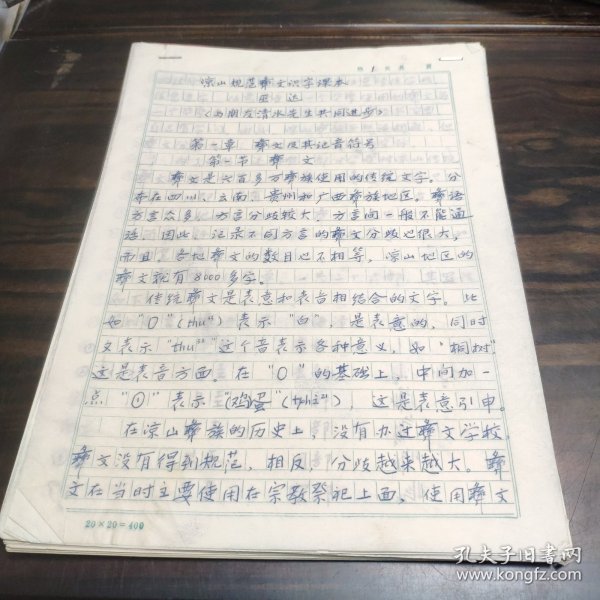 第 1 页 共 页
凉山规范彝文识字课本
（与朋友清水先生共同进步）
第一章 彝文及其记音符号
第一节 彝文
彝文是六百多万彝族使用的传统文字。分
布在四川、云南、贵州和广西彝族地区。彝语
方言众多，方言分歧较大，方言间一般不能通
话，因此，记录不同方言的彝文分歧也很大，
而且，各地彝文的数目也不相等，凉山地区的
彝文就有8000多字。
传统彝文是表意和表音相结合的文字。比
如“O”（thu）表示“白”，是表意的，同时
又表示“thu”这个音表示各种意义，如“桐树”，
这是表音方面。在“O”的基础上，中间加一
点“⊙”表示“鸡蛋”，这是表意引申。
在凉山彝族的历史上，没有办过彝文学校，
彝文没有得到规范，相反，分歧越来越大。彝
文在当时主要使用在宗教祭祀上面，使用彝文
20×20=400
孔夫子旧书网
www.kongfz.com